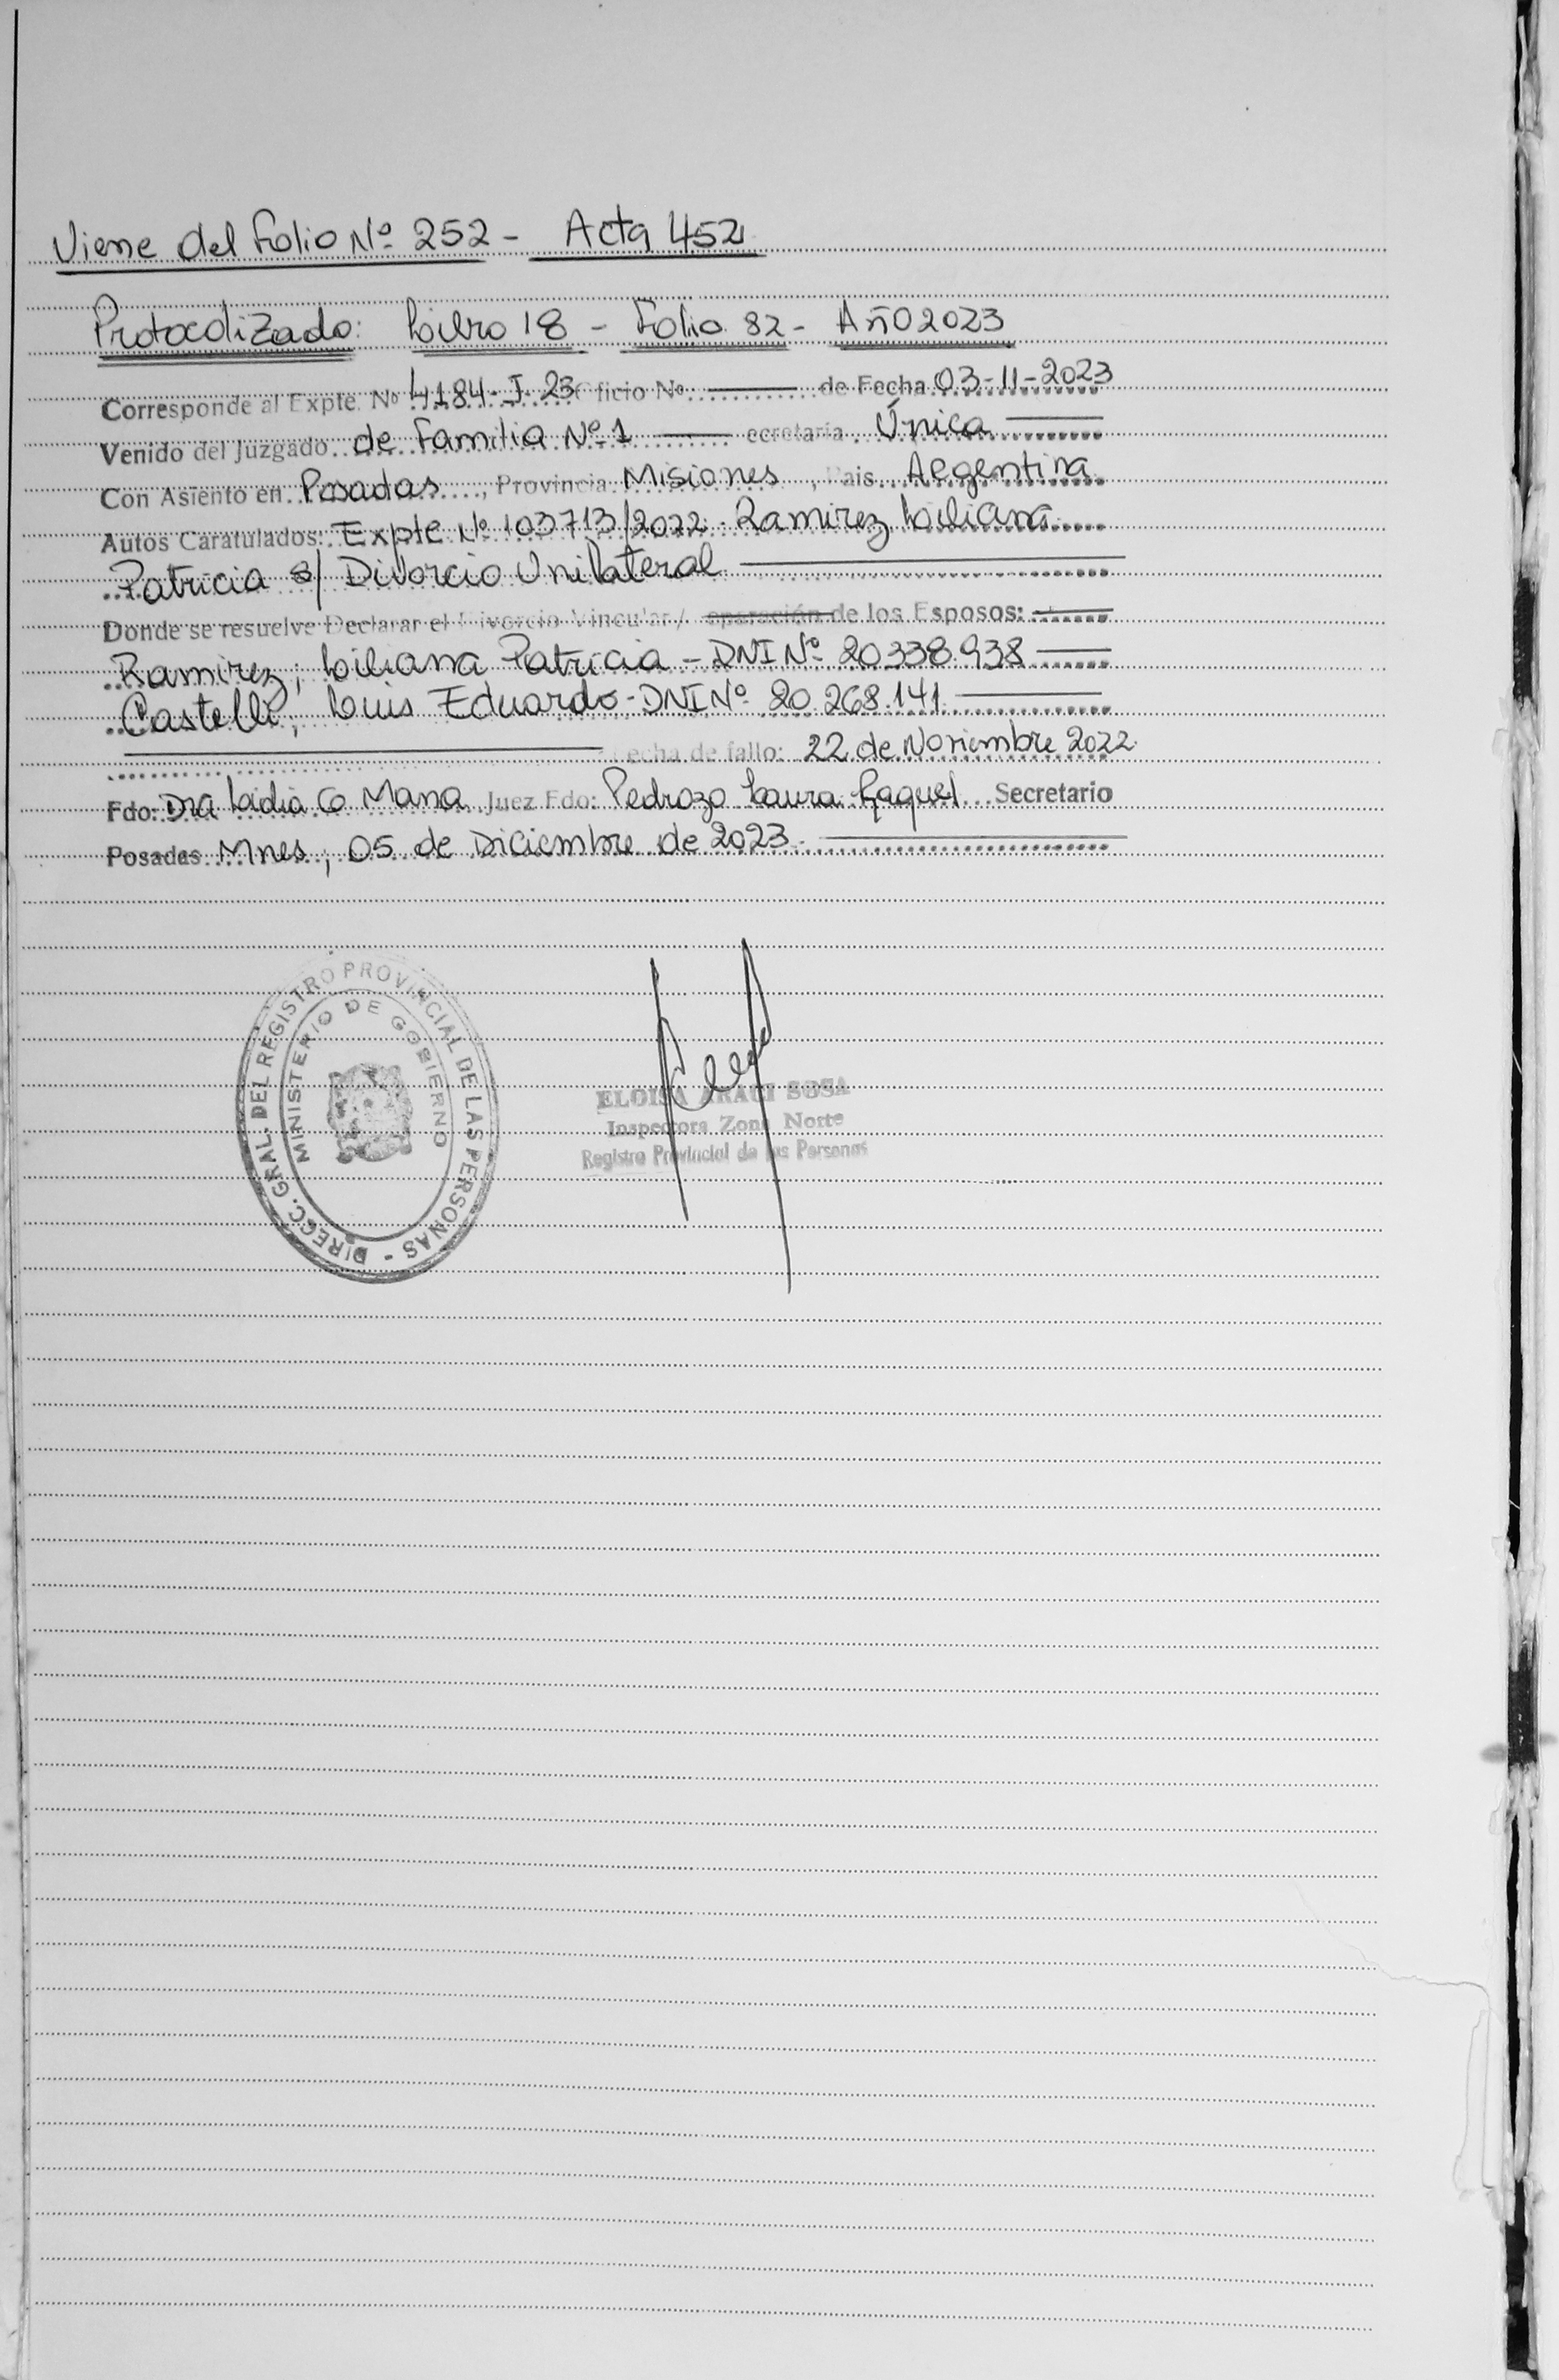 Viene del Folio Nº 252 - Acta 452
Protocolizado: Libro 18 - Folio 82 - Año 2023
Corresponde al Expte. Nº 4184-J-23 Oficio Nº de Fecha 03-11-2023
Venido del Juzgado de Familia Nº 1 ecretaria Única
Con Asiento en Posadas, Provincia Misiones, Pais Argentina
Autos Caratulados: Expte Nº 103713/2022 Ramirez Liliana
Patricia s/ Divorcio Unilateral
Donde se resuelve Declarar el Divorcio Vincular / eparación de los Esposos:
Ramirez; Liliana Patricia - DNI Nº 20338.938
Castelli; Luis Eduardo - DNI Nº 20.268.141
Fecha de fallo: 22 de Noviembre 2022
Fdo: Dra Lidia Juez Fdo: Pedrozo Laura Raquel Secretario
Posadas Mnes, 05 de Diciembre de 2023
DIRECC. GRAL. DEL REGISTRO PROVINCIAL DE LAS PERSONAS -
MINISTERIO DE GOBIERNO
ELOISA ARACI SOSA
Inspectora Zona Norte
Registro Provincial de las Personas